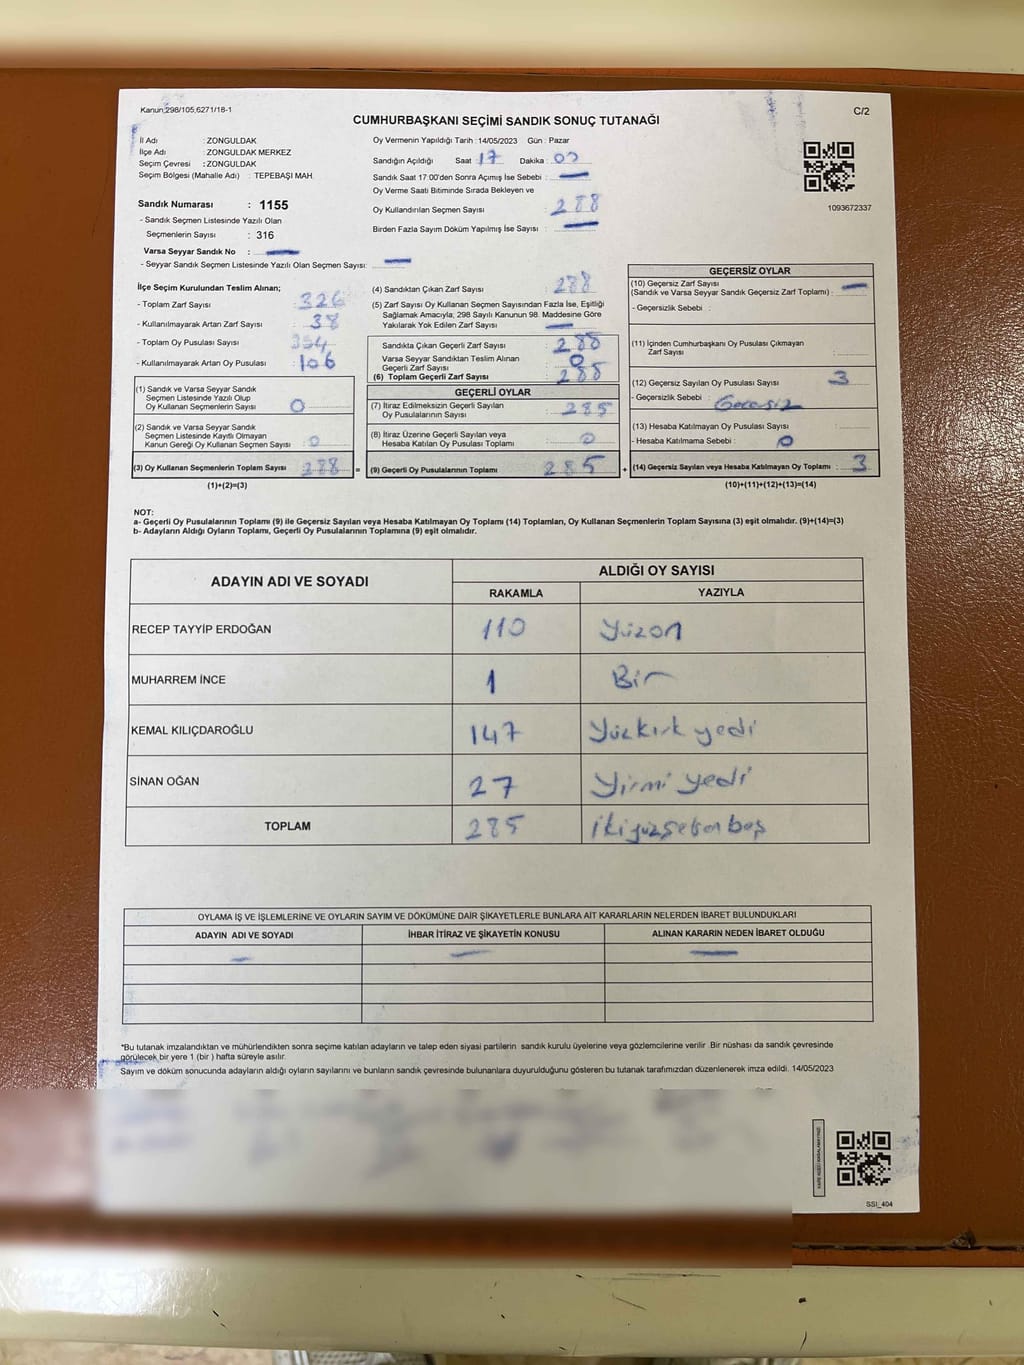 Kanun 298/105,6271/18-1
C/2
CUMHURBAŞKANI SEÇİMİ SANDIK SONUÇ TUTANAĞI
İl Adı : ZONGULDAK
İlçe Adı : ZONGULDAK MERKEZ
Seçim Çevresi : ZONGULDAK
Seçim Bölgesi (Mahalle Adı) : TEPEBAŞI MAH.
Sandık Numarası : 1155
- Sandık Seçmen Listesinde Yazılı Olan
Seçmenlerin Sayısı : 316
Varsa Seyyar Sandık No : —
- Seyyar Sandık Seçmen Listesinde Yazılı Olan Seçmen Sayısı: —
Oy Vermenin Yapıldığı Tarih : 14/05/2023 Gün : Pazar
Sandığın Açıldığı Saat : 17 Dakika : 00
Sandık Saat 17:00'den Sonra Açımış İse Sebebi : —
Oy Verme Saati Bitiminde Sırada Bekleyen ve
Oy Kullandırılan Seçmen Sayısı : 288
Birden Fazla Sayım Döküm Yapılmış İse Sayısı : —
1093672337
İlçe Seçim Kurulundan Teslim Alınan;
- Toplam Zarf Sayısı : 326
- Kullanılmayarak Artan Zarf Sayısı : 38
- Toplam Oy Pusulası Sayısı : 394
- Kullanılmayarak Artan Oy Pusulası : 106
(1) Sandık ve Varsa Seyyar Sandık
Seçmen Listesinde Yazılı Olup
Oy Kullanan Seçmenlerin Sayısı : 0
(2) Sandık ve Varsa Seyyar Sandık
Seçmen Listesinde Kayıtlı Olmayan
Kanun Gereği Oy Kullanan Seçmen Sayısı : 0
(3) Oy Kullanan Seçmenlerin Toplam Sayısı : 288 =
(1)+(2)=(3)
(4) Sandıktan Çıkan Zarf Sayısı : 288
(5) Zarf Sayısı Oy Kullanan Seçmen Sayısından Fazla İse, Eşitliği
Sağlamak Amacıyla, 298 Sayılı Kanunun 98. Maddesine Göre
Yakılarak Yok Edilen Zarf Sayısı : —
Sandıkta Çıkan Geçerli Zarf Sayısı : 288
Varsa Seyyar Sandıktan Teslim Alınan
Geçerli Zarf Sayısı : 0
(6) Toplam Geçerli Zarf Sayısı : 288
GEÇERLİ OYLAR
(7) İtiraz Edilmeksizin Geçerli Sayılan
Oy Pusulalarının Sayısı : 285
(8) İtiraz Üzerine Geçerli Sayılan veya
Hesaba Katılan Oy Pusulası Toplamı : 0
(9) Geçerli Oy Pusulalarının Toplamı : 285 +
GEÇERSİZ OYLAR
(10) Geçersiz Zarf Sayısı
(Sandık ve Varsa Seyyar Sandık Geçersiz Zarf Toplamı) : —
- Geçersizlik Sebebi :
(11) İçinden Cumhurbaşkanı Oy Pusulası Çıkmayan
Zarf Sayısı :
(12) Geçersiz Sayılan Oy Pusulası Sayısı : 3
- Geçersizlik Sebebi : Geçersiz
(13) Hesaba Katılmayan Oy Pusulası Sayısı :
- Hesaba Katılmama Sebebi : 0
(14) Geçersiz Sayılan veya Hesaba Katılmayan Oy Toplamı : 3
(10)+(11)+(12)+(13)=(14)
NOT:
a- Geçerli Oy Pusulalarının Toplamı (9) ile Geçersiz Sayılan veya Hesaba Katılmayan Oy Toplamı (14) Toplamları, Oy Kullanan Seçmenlerin Toplam Sayısına (3) eşit olmalıdır. (9)+(14)=(3)
b- Adayların Aldığı Oyların Toplamı, Geçerli Oy Pusulalarının Toplamına (9) eşit olmalıdır.
ADAYIN ADI VE SOYADI
ALDIĞI OY SAYISI
RAKAMLA YAZIYLA
RECEP TAYYİP ERDOĞAN 110 Yüzon
MUHARREM İNCE 1 Bir
KEMAL KILIÇDAROĞLU 147 Yüzkırk yedi
SİNAN OĞAN 27 Yirmi yedi
TOPLAM 285 ikiyüzseksen beş
OYLAMA İŞ VE İŞLEMLERİNE VE OYLARIN SAYIM VE DÖKÜMÜNE DAİR ŞİKAYETLERLE BUNLARA AİT KARARLARIN NELERDEN İBARET BULUNDUKLARI
ADAYIN ADI VE SOYADI İHBAR İTİRAZ VE ŞİKAYETİN KONUSU ALINAN KARARIN NEDEN İBARET OLDUĞU
— — —
*Bu tutanak imzalandıktan ve mühürlendikten sonra seçime katılan adayların ve talep eden siyasi partilerin sandık kurulu üyelerine veya gözlemcilerine verilir. Bir nüshası da sandık çevresinde
görülecek bir yere 1 (bir) hafta süreyle asılır.
Sayım ve döküm sonucunda adayların aldığı oyların sayılarını ve bunların sandık çevresinde bulunanlara duyurulduğunu gösteren bu tutanak tarafımızdan düzenlenerek imza edildi. 14/05/2023
SSI_404